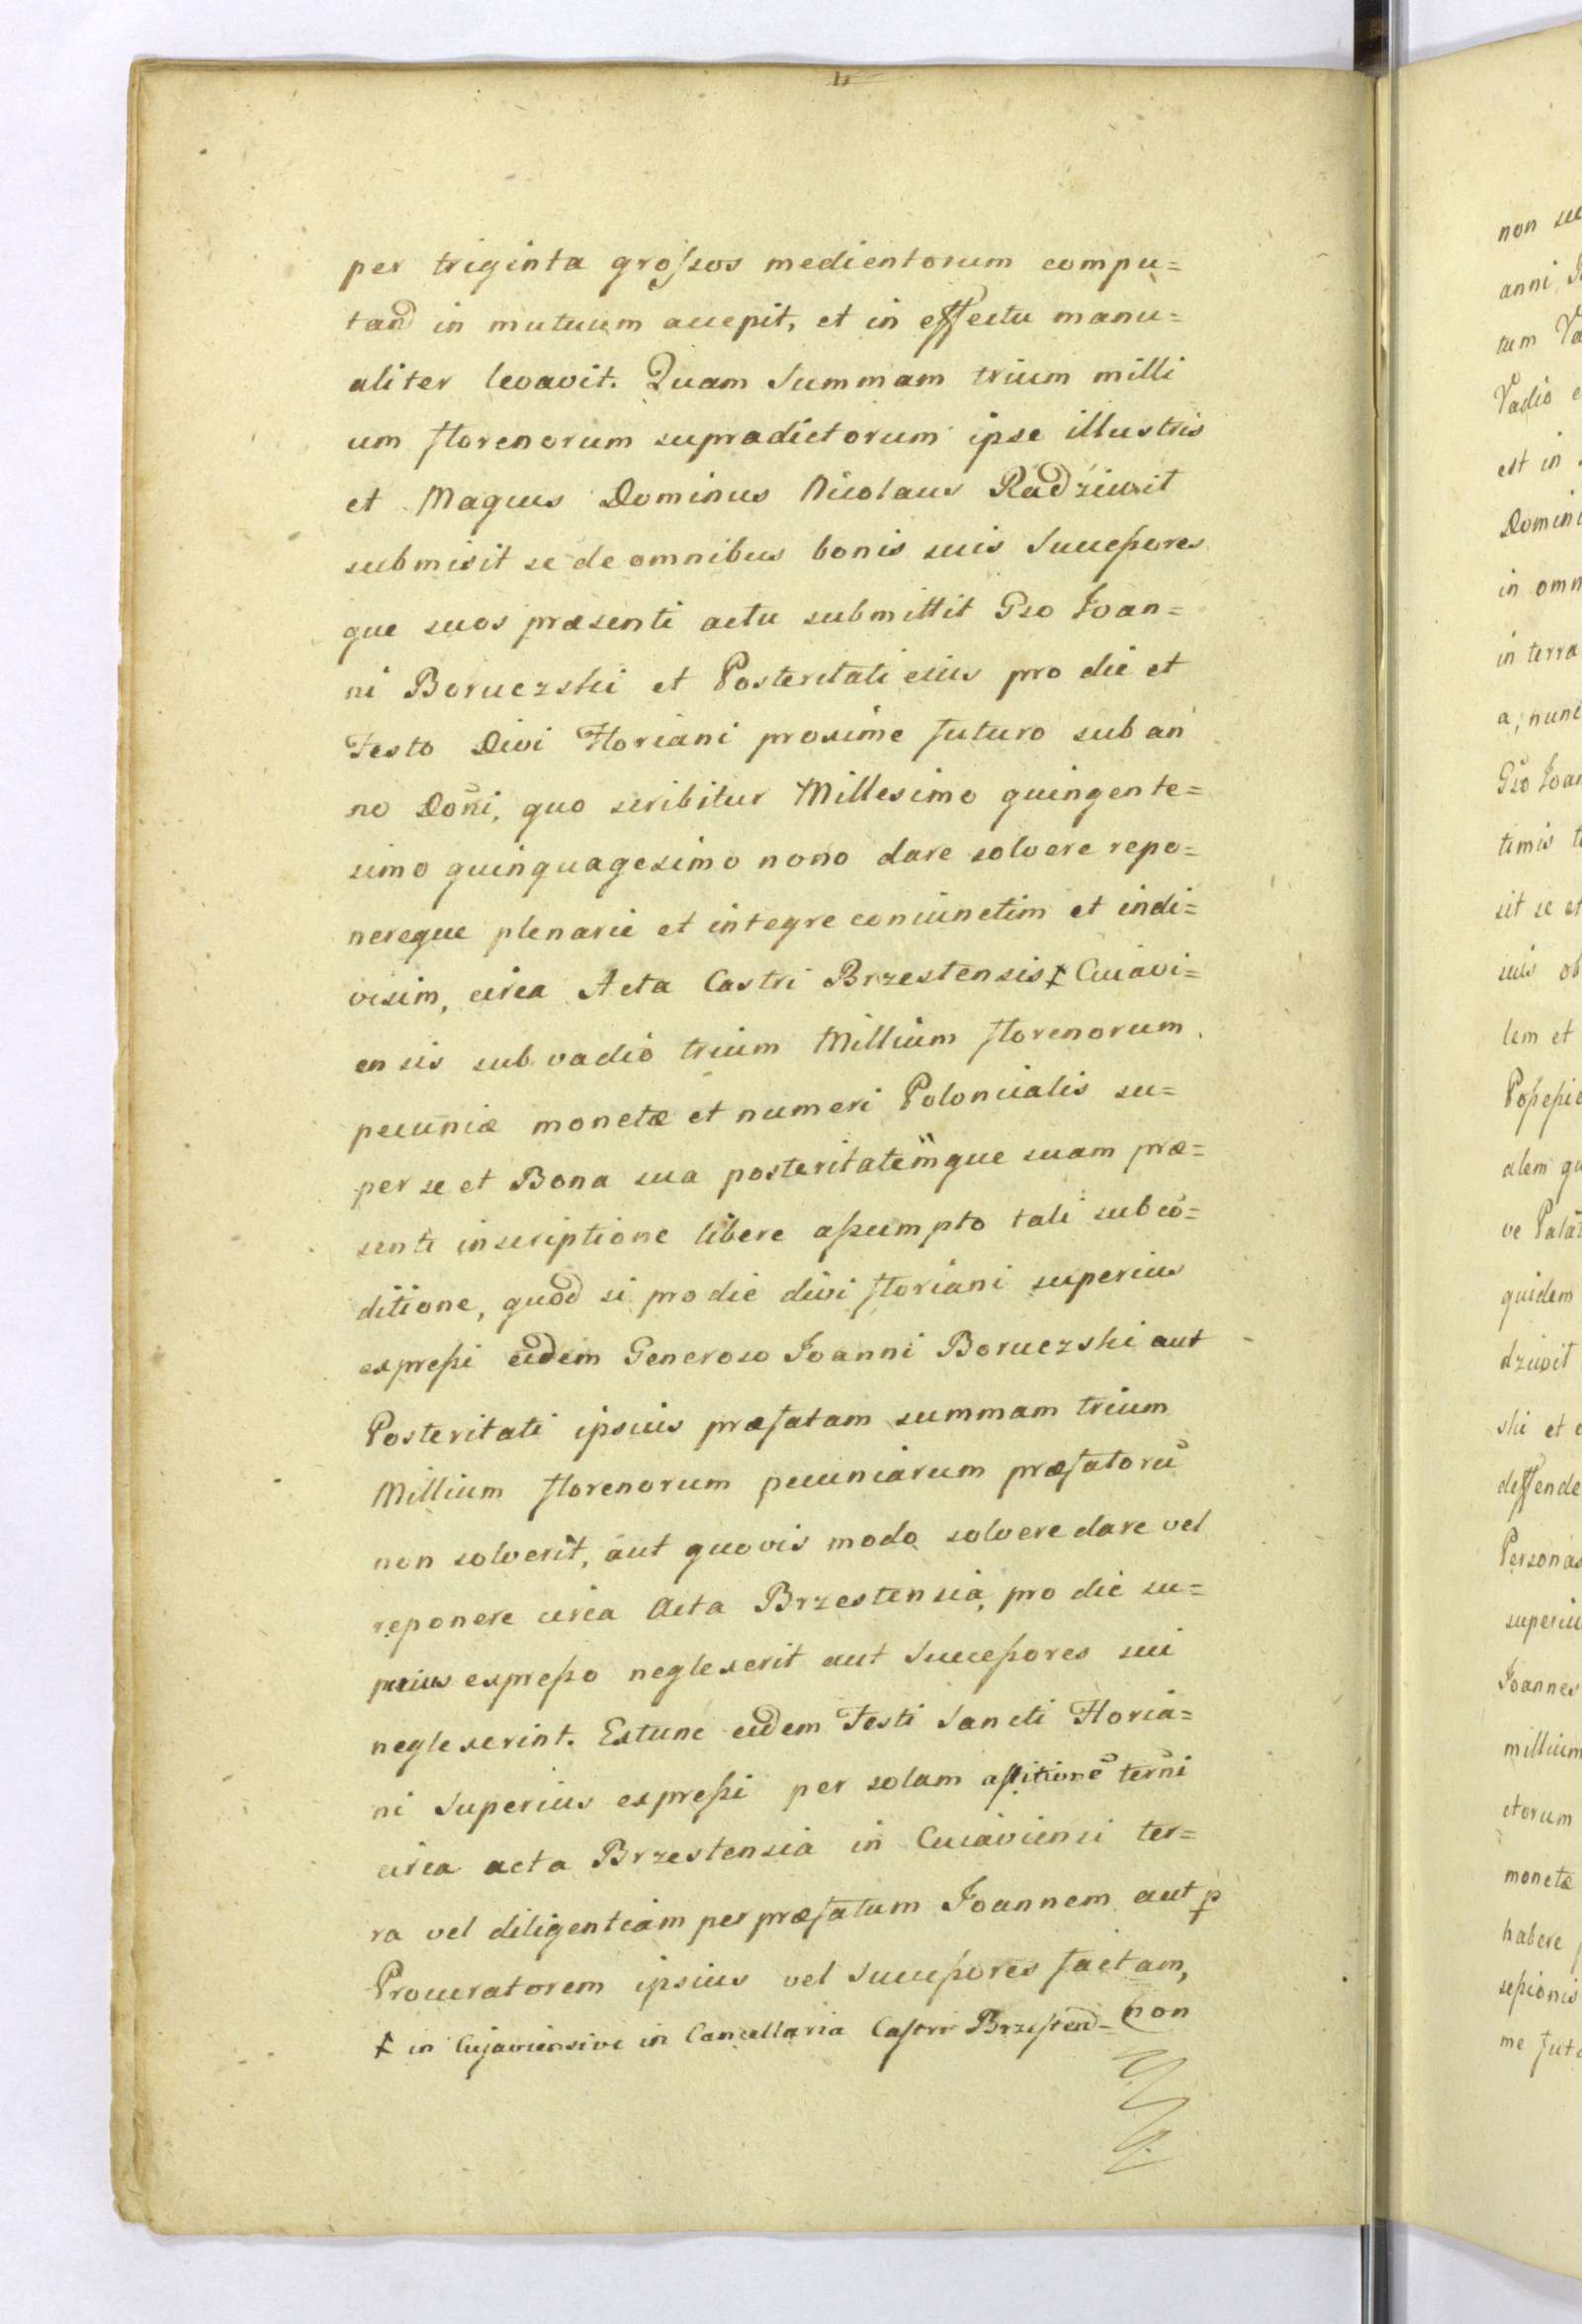 per triginta grossos medientorum compu=
tand in mutuum accepit, et in effectu manu=
aliter levavit. Quam Summam trium milli
um florenorum supradictorum ipse illustris
et Magcus Dominus Nicolaus Radziwit
submisit se de omnibus bonis suis Successores
que suos præsenti actu submittit Gso Joan=
ni Boruczski et Posteritati eius pro die et
Festo Divi Floriani proxime futuro sub an
no Doñi, quo scribitur Millesimo quingente=
simo quinquagesimo nono dare solvere repo=
nereque plenarie et integre coniunctim et indi=
visim, circa Acta Castri Brzestensis ⨍ Cuiavi=
ensis sub vadio trium Millium florenorum
pecuniæ monetæ et numeri Poloncialis su=
per se et Bona sua posteritatemque suam præ=
senti inscriptione libere assumpto tali sub cō=
ditione, quod si pro die divi floriani superius
expressi eidem Generoso Joanni Boruczski aut
Posteritati ipsius præfatam summam trium
Millium florenorum pecuniarum præfatorū
non solverit, aut quovis modo solvere dare vel
reponere circa Acta Brzestensia, pro die su=
perius expresso neglexerit aut Successores sui
neglexerint. Extunc eidem Festi Sancti Floria=
ni Superius expressi per solam terñi
circa acta Brzestensia in Cuiaviensi ter=
ra vel diligentiam per præfatum Joannem aut p
Procuratorem ipsius vel Successores factam,
⨍ in Cujaviensive in Cancellaria Castri Brzestend= non
non
anni
tum
Vadio
est in
Domini
in omn
in terra
a, nunc
Gso Joan
timis
sit se et
suis ob
lem et
Possessio
alem
ve Palat
quidem
dziwit
ski et
deffende
Personas
superiu
Joannes
millium
ctorum
monetæ
habere
sessionis
me futu